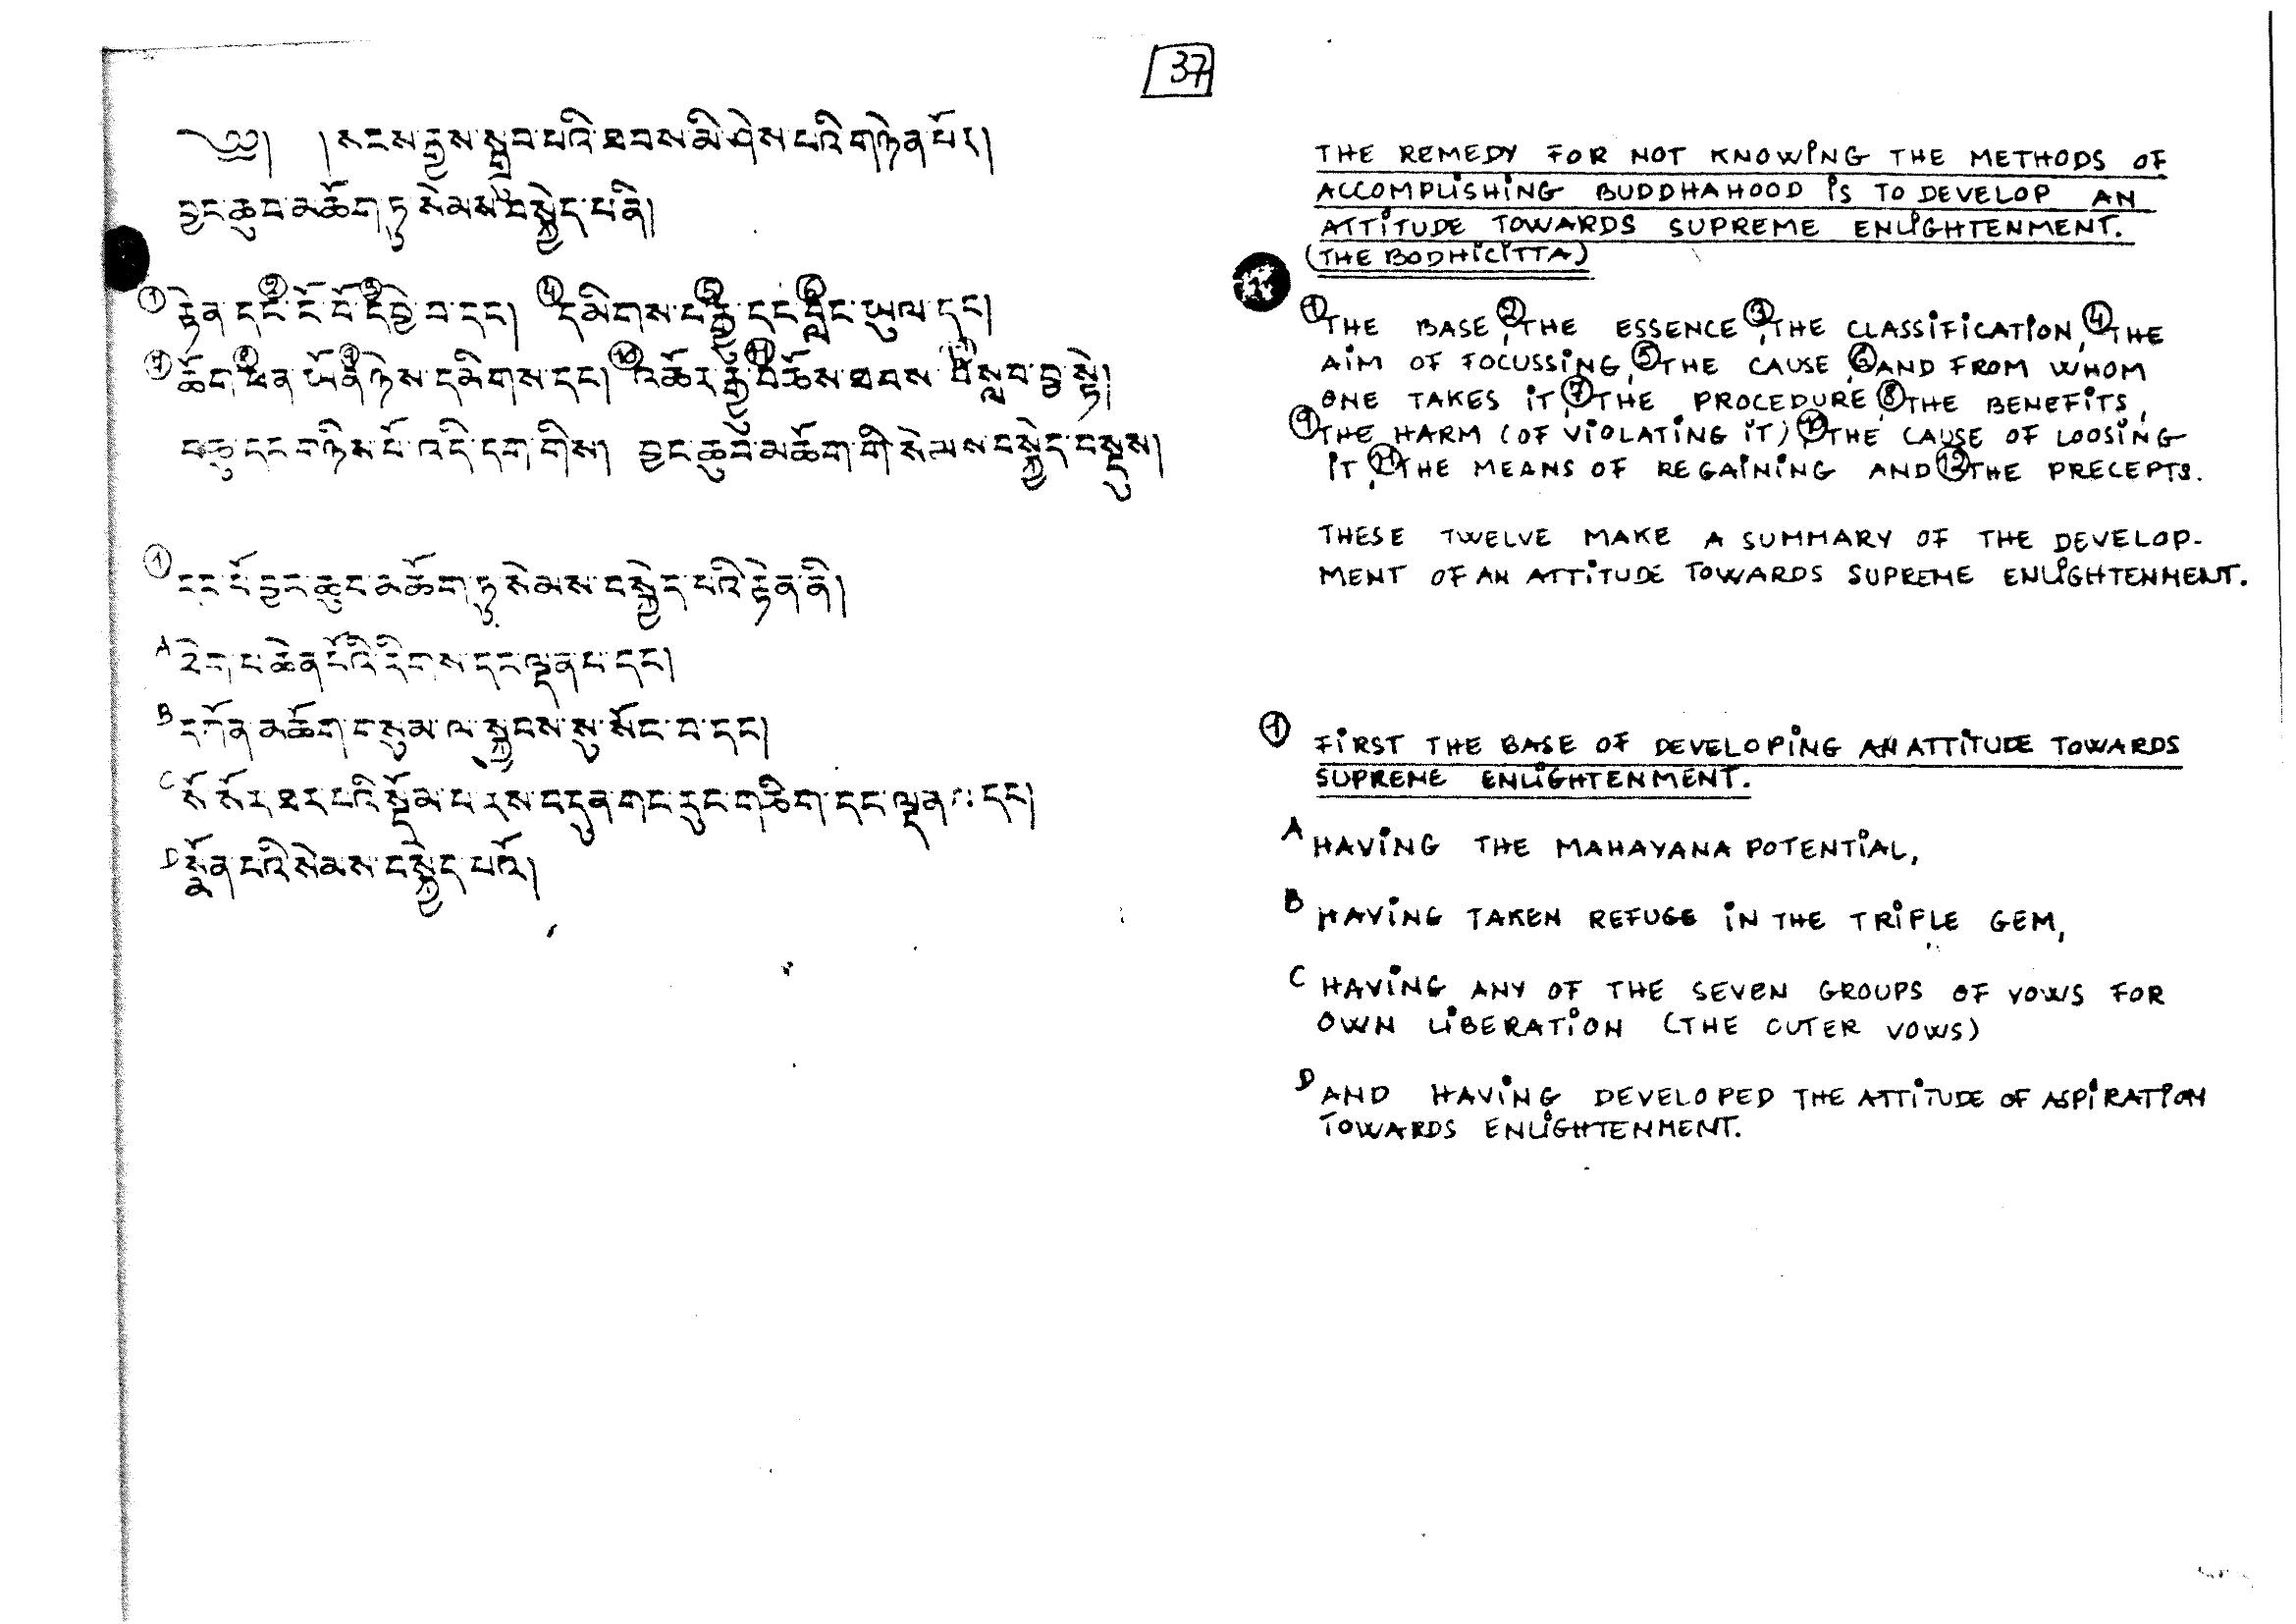 37
༄༅། །སངས་རྒྱས་སྒྲུབ་པའི་ཐབས་མི་ཤེས་པའི་གཉེན་པོར།
བྱང་ཆུབ་མཆོག་ཏུ་སེམས་བསྐྱེད་པ་ནི།
① རྟེན་དང་② ངོ་བོ་③ དབྱེ་བ་དང། ④ དམིགས་པ་⑤ རྒྱུ་དང་⑥ བླང་ཡུལ་དང།
⑦ ཆོ་ག་⑧ ཕན་ཡོན་⑨ ཉེས་དམིགས་དང། ⑩ འཆོར་རྒྱུ་⑪ བཅོས་ཐབས་⑫ བསླབ་བྱ་སྟེ།
བཅུ་དང་གཉིས་པོ་འདི་དག་གིས། བྱང་ཆུབ་མཆོག་གི་སེམས་བསྐྱེད་བསྡུས།
① དང་པོ་བྱང་ཆུབ་མཆོག་ཏུ་སེམས་བསྐྱེད་པའི་རྟེན་ནི།
A ཐེག་པ་ཆེན་པོའི་རིགས་དང་ལྡན་པ་དང།
B དཀོན་མཆོག་གསུམ་ལ་སྐྱབས་སུ་སོང་བ་དང།
C སོ་སོར་ཐར་པའི་སྡོམ་པ་རིས་བདུན་གང་རུང་གཅིག་དང་ལྡན་པ་དང།
D སྨོན་པའི་སེམས་བསྐྱེད་པའོ།
THE REMEDY FOR NOT KNOWING THE METHODS OF
ACCOMPLISHING BUDDHAHOOD IS TO DEVELOP AN
ATTITUDE TOWARDS SUPREME ENLIGHTENMENT.
(THE BODHICITTA)
① THE BASE, ② THE ESSENCE, ③ THE CLASSIFICATION, ④ THE
AIM OF FOCUSSING, ⑤ THE CAUSE, ⑥ AND FROM WHOM
ONE TAKES IT, ⑦ THE PROCEDURE, ⑧ THE BENEFITS,
⑨ THE HARM (OF VIOLATING IT) ⑩ THE CAUSE OF LOOSING
IT, ⑪ THE MEANS OF REGAINING AND ⑫ THE PRECEPTS.
THESE TWELVE MAKE A SUMMARY OF THE DEVELOP-
MENT OF AN ATTITUDE TOWARDS SUPREME ENLIGHTENMENT.
① FIRST THE BASE OF DEVELOPING AN ATTITUDE TOWARDS
SUPREME ENLIGHTENMENT.
A HAVING THE MAHAYANA POTENTIAL,
B HAVING TAKEN REFUGE IN THE TRIPLE GEM,
C HAVING ANY OF THE SEVEN GROUPS OF VOWS FOR
OWN LIBERATION (THE OUTER VOWS)
D AND HAVING DEVELOPED THE ATTITUDE OF ASPIRATION
TOWARDS ENLIGHTENMENT.